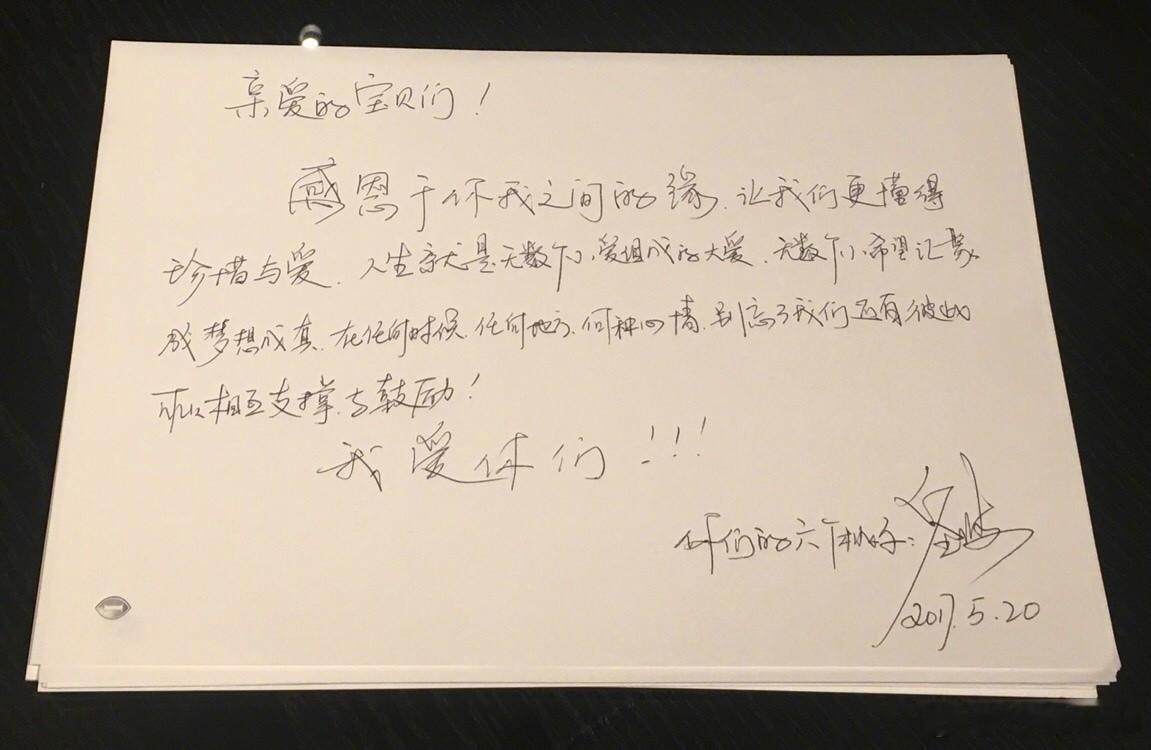 亲爱的宝贝们！
感恩于你我之间的缘，让我们更懂得
珍惜与爱．人生就是无数个小爱组成的大爱．无数个小希望汇聚
成梦想成真．在任何时候．任何地方．何种心情．别忘了我们还有彼此
可以相互支撑与鼓励！
我爱你们！！！
你们的六个机哥：
2017.5.20